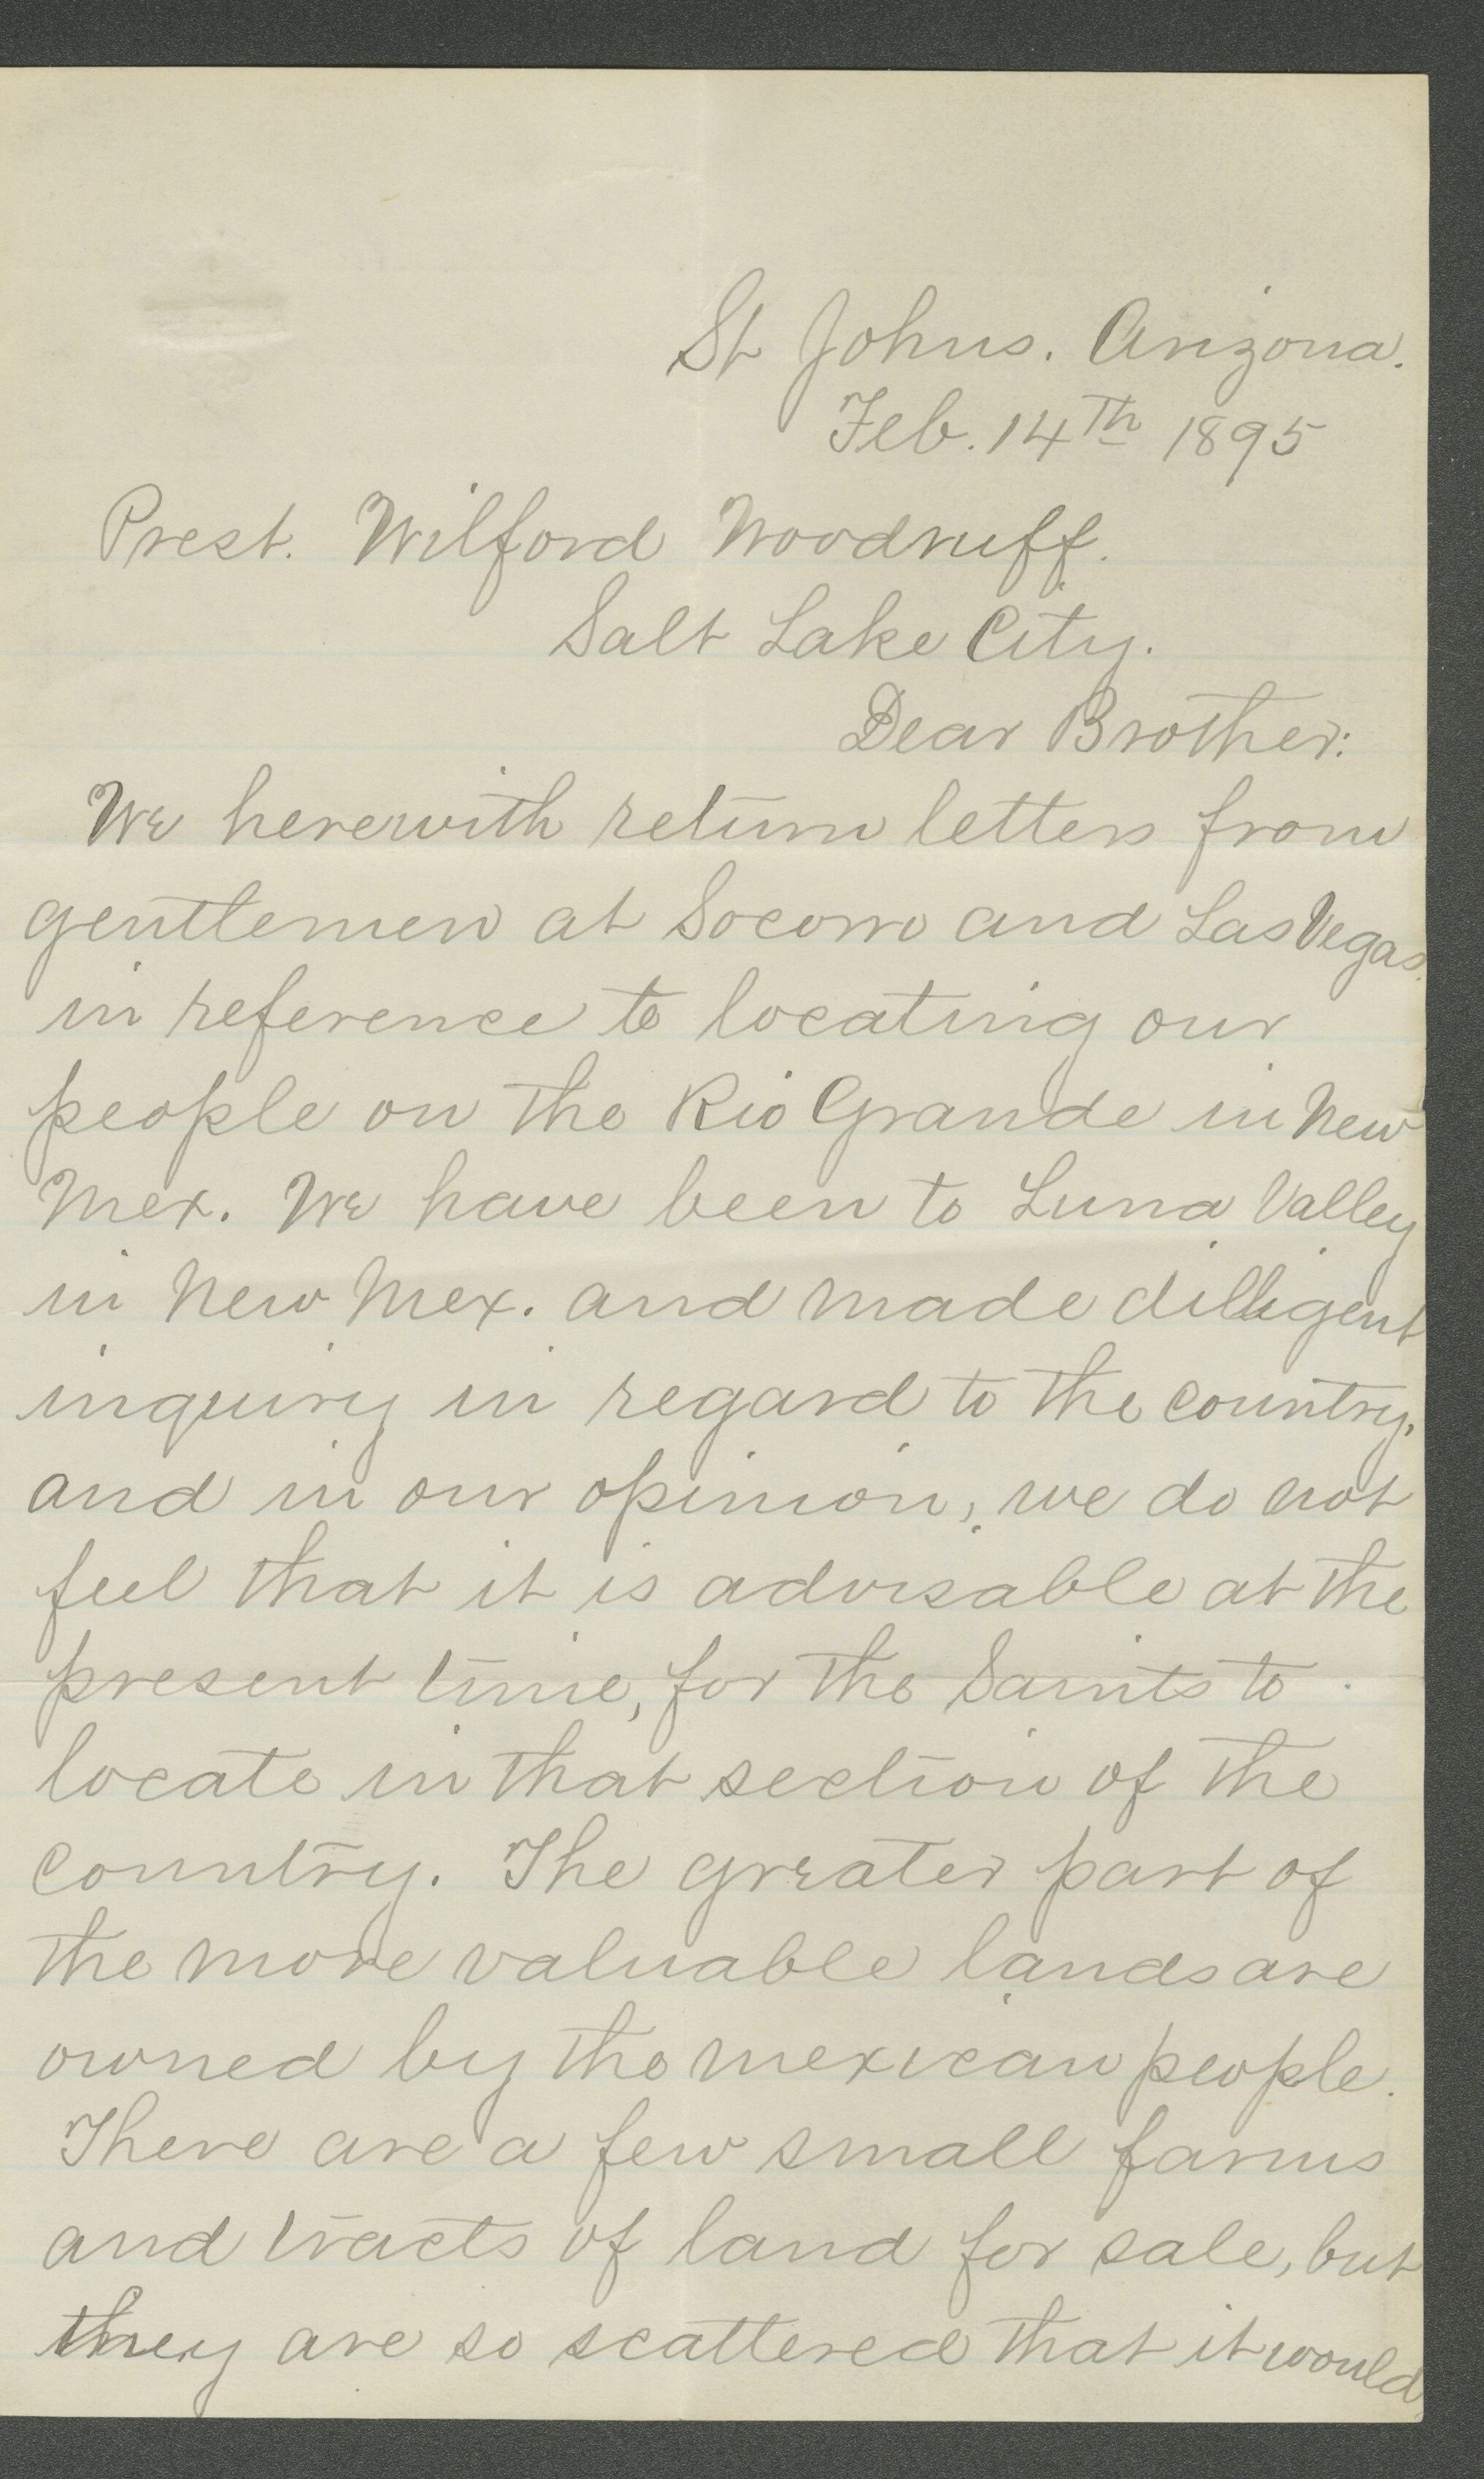 St Johns. Arizona.
Feb. 14th 1895
Prest. Wilford Woodruff.
Salt Lake City.
Dear Brother:
We herewith return letters from
gentlemen at Socorro and Las Vegas.
in reference to locating our
people on the Rio Grande in New
Mex. We have been to Luna Valley
in New Mex. and made dilligent
inquiry in regard to the country,
and in our opinion, we do not
feel that it is advisable at the
present time, for the Saints to
locate in that section of the
country. The greater part of
the more valuable lands are
owned by the mexican people.
There are a few small farms
and tracts of land for sale, but
they are so scattered that it would